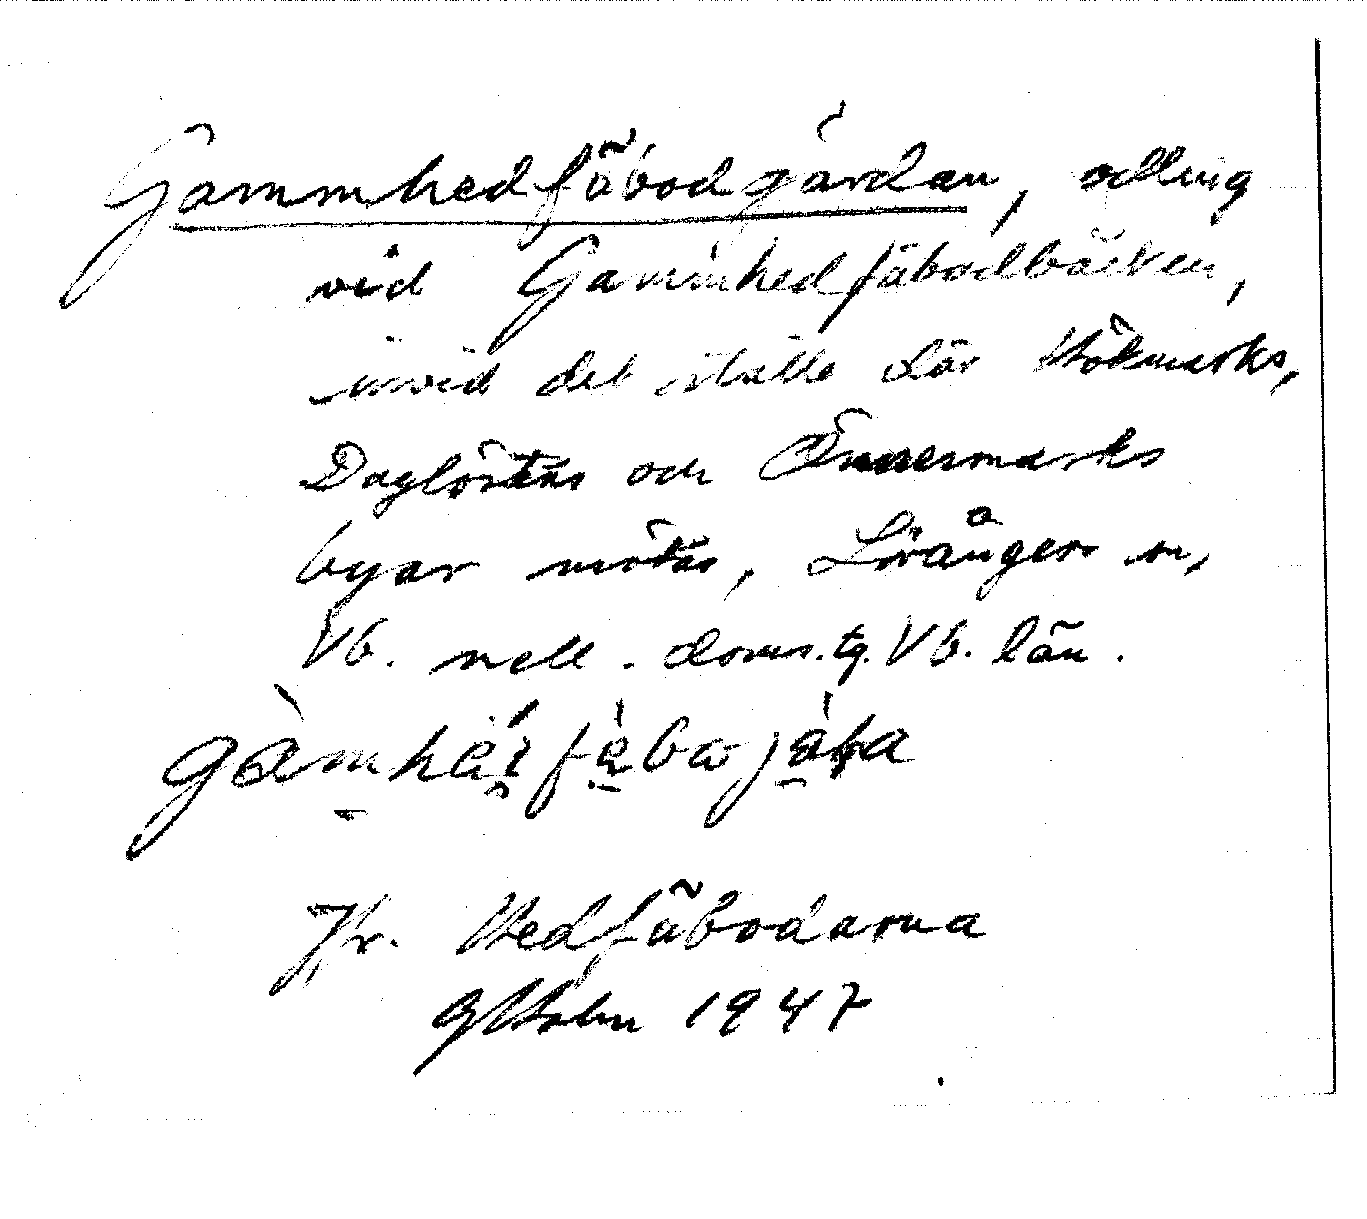 Gammhedfäbodgårdan, odling
vid Gammhedfäbodbäcken,
invid det ställe där Hökmarks,
Daglöstens och Önnesmarks
byar mötas, Lövångers sn,
Vb. nell. doms.tg. Vb. län.
Jfr. Hedfäbodarna
GHolm 1947